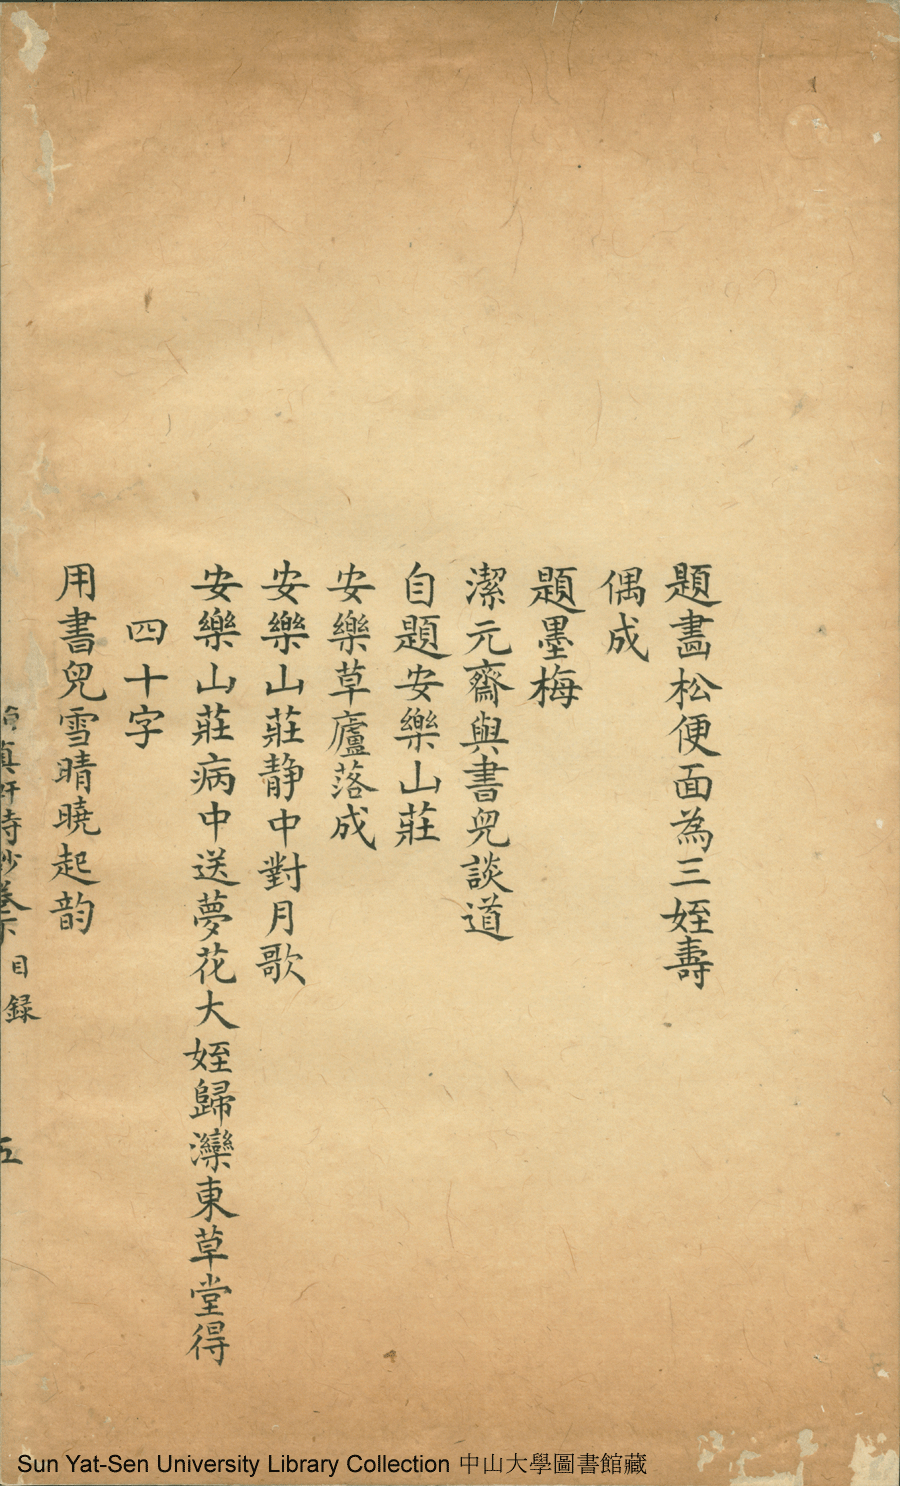 題畵松便面為三姪壽
偶成
題墨梅
潔元齋與書兒談道
自題安樂山莊
安樂草廬落成
安樂山莊静中對月歌
安樂山莊病中送夢花大姪歸灤東草堂得
四十字
用書兒雪晴曉起韵
真軒詩鈔卷下 目録 五
Sun Yat-Sen University Library Collection 中山大學圖書館藏